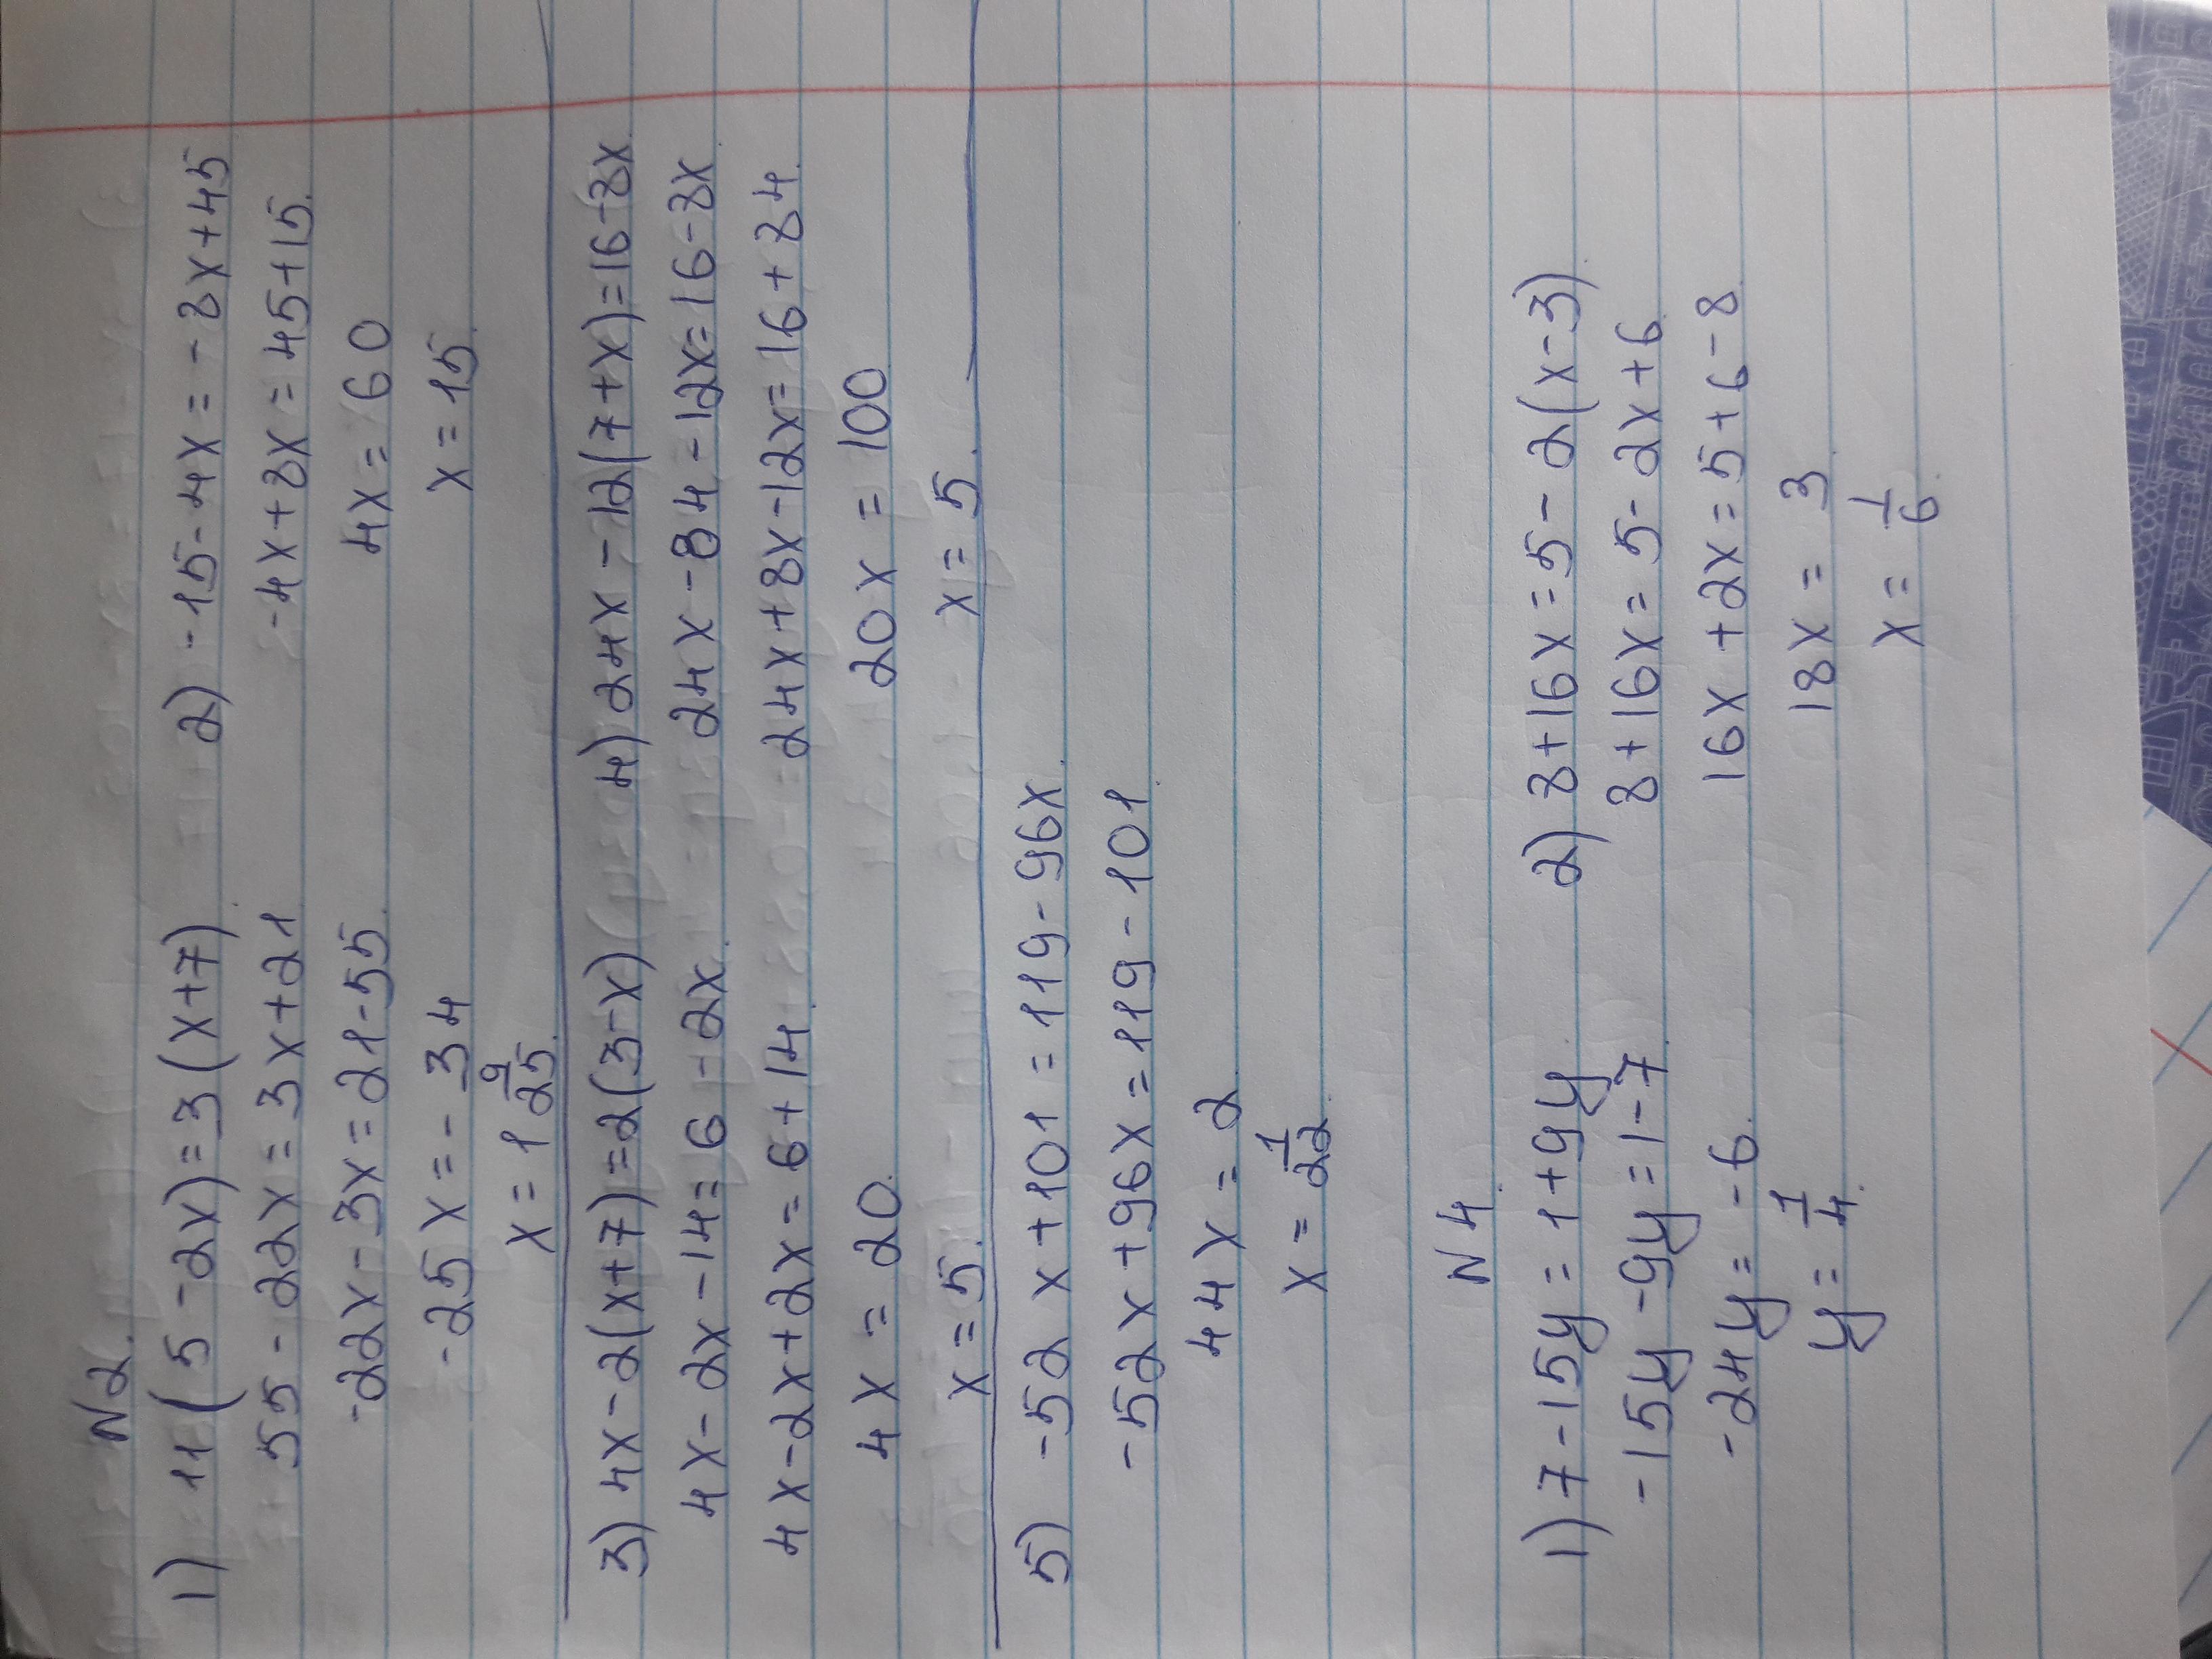 N2.
1) 11(5-2x)=3(x+7)
55-22x=3x+21
-22x-3x=21-55
-25x=-34
x=1 9/25
2) -15-4x=-8x+45
-4x+8x=45+15
4x=60
x=15
3) 4x-2(x+7)=2(3-x)
4x-2x-14=6-2x
4x-2x+2x=6+14
4x=20
x=5
4) 24x-12(7+x)=16-8x
24x-84-12x=16-8x
24x+8x-12x=16+84
20x=100
x=5
5) -52x+101=119-96x
-52x+96x=119-101
44x=2
x=1/22
N4
1) 7-15y=1+9y
-15y-9y=1-7
-24y=-6
y=1/4
2) 8+16x=5-2(x-3)
8+16x=5-2x+6
16x+2x=5+6-8
18x=3
x=1/6